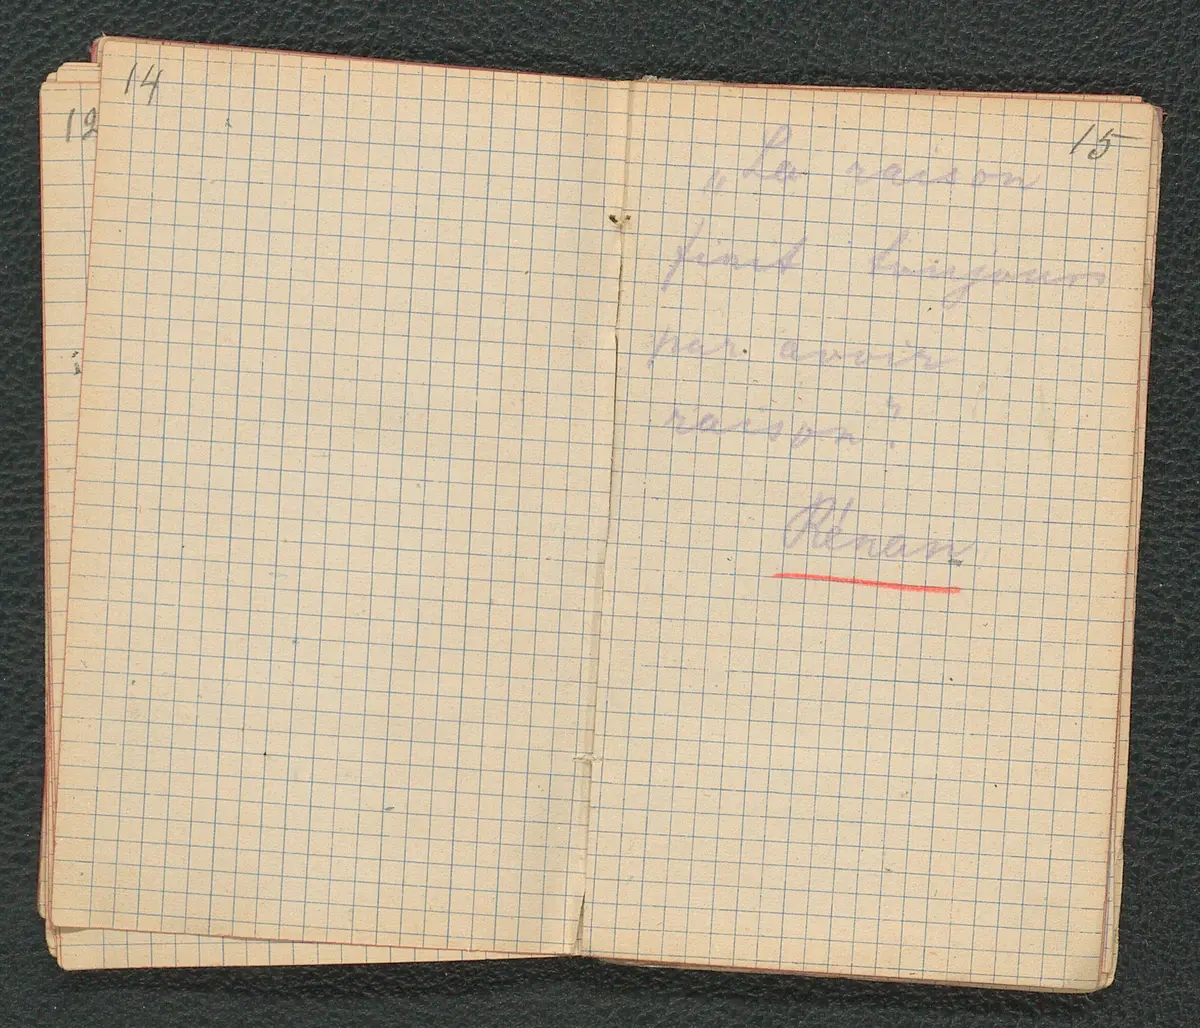 14
12
15
„La raison
finit toujours
par avoir
raison".
Rénan